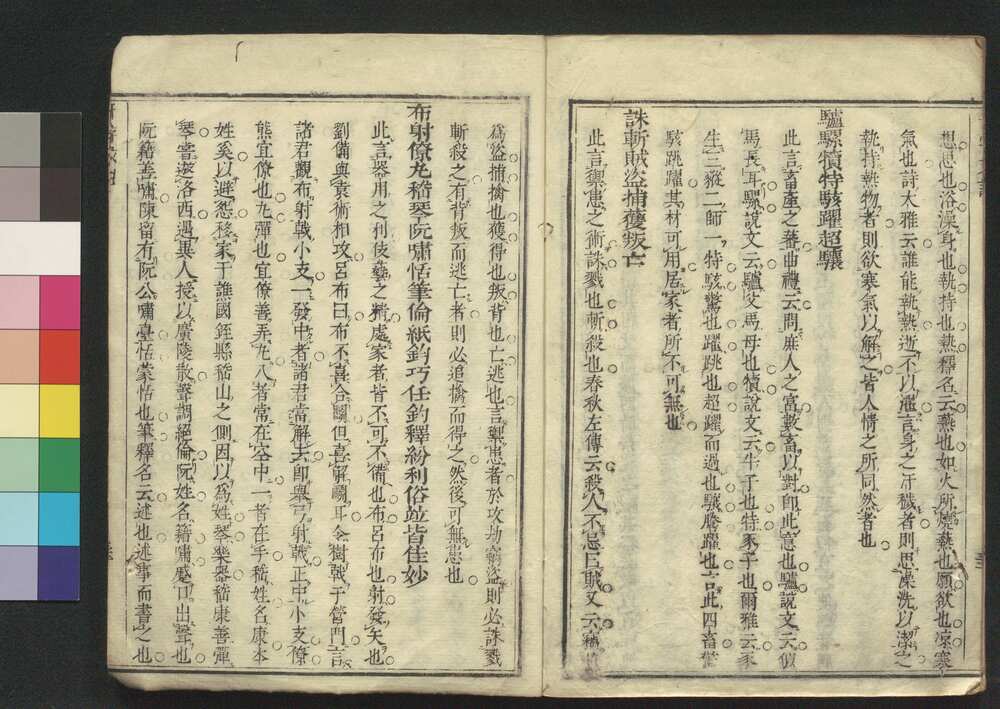 想思也浴澡身也執持也熱釋名云爇也如火所燒爇也願欲也涼寒
氣也詩大雅云誰能執熱逝不以濯言身之汗穢者則思澡洗以潔之
執持熱物者則欲寒氣以解之皆人情之所同然者也
驢騾犢特駭躍超驤
此言畜產之蕃曲禮云問庶人之富數畜以對即此意也驢說文云似
馬長耳騾說文云驢父馬母也犢說文云牛子也特豕子也爾雅云豕
生三豵二師一特駭驚也躍跳也超躍而過也驤騰躍也言此四畜驚
駭跳躍其材可用居家者所不可無也
誅斬賊盜捕獲叛亡
此言禦患之術誅戮也斬殺也春秋左傳云殺人不忌曰賊又云竊賄
為盜捕擒也獲得也叛背也亡逃也言禦患者於攻劫竊盜則必誅戮
斬殺之有背叛而逃亡者則必追擒而得之然後可無患也
布射僚丸嵇琴阮嘯恬筆倫紙鈞巧任釣釋紛利俗竝皆佳妙
此言器用之利技藝之精處家者皆不可不備也布呂布也射發矢也
劉備與袁術相攻呂布曰布不喜合鬭但喜解鬭耳令樹戟于營門言
諸君觀布射戟小支一發中者諸君當解去即舉弓射戟正中小支僚
熊宜僚也丸彈也宜僚善弄丸八者常在空中一者在手嵇姓名康本
姓奚以避怨移家于譙國銍縣嵇山之側因以為姓琴樂器嵇康善彈
琴嘗遊洛西遇異人授以廣陵散聲調絕倫阮姓名籍嘯蹙口出聲也
阮籍善嘯陳留有阮公嘯臺恬蒙恬也筆釋名云述也述事而書之也